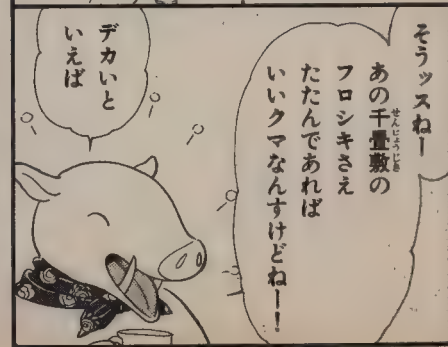 そうッスねー
あの千畳敷の
フロシキさえ
たたんであれば
いいクマなんすけどねー！
デカいと
いえば